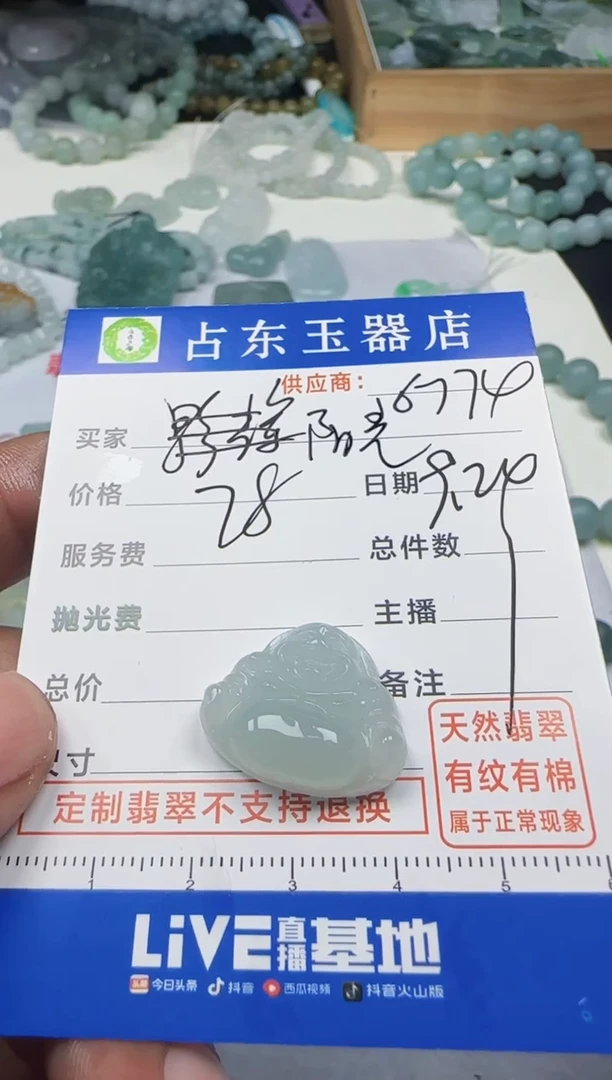 占东玉器店
供应商: 6774
买家 阳光
价格 78 日期 9.24
服务费 总件数
抛光费 主播
总价 备注
尺寸
天然翡翠
有纹有棉
属于正常现象
定制翡翠不支持退换
1 2 3 4 5
LiVE直播基地
今日头条 抖音 西瓜视频 抖音火山版